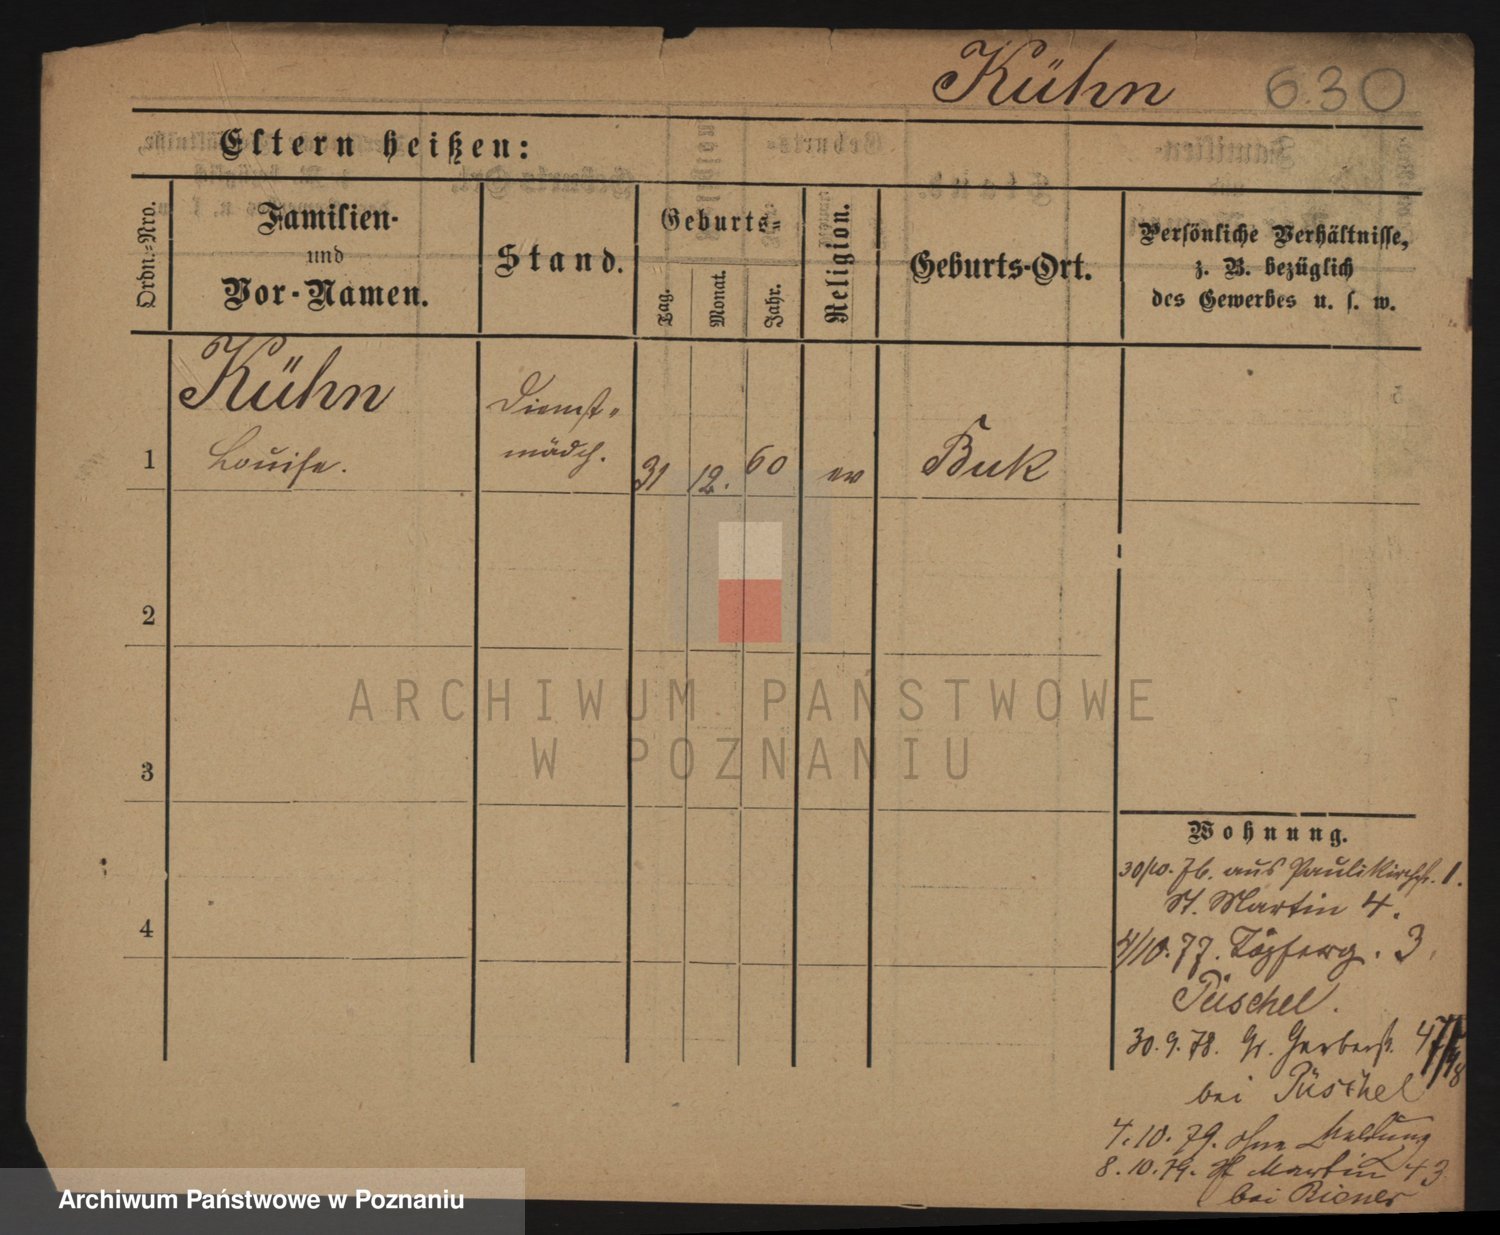 Kühn 630
Eltern heißen:
Ordn.=Nro.
Familien-
und
Vor-Namen.
Stand.
Geburts=
Tag.
Monat.
Jahr.
Religion.
Geburts-Ort.
Persönliche Verhältnisse,
z. B. bezüglich
des Gewerbes u. s. w.
1
Kühn
Louise.
Dienst=
mädch.
31
12.
60
ev
Buk
2
3
4
ARCHIWUM PAŃSTWOWE
W POZNANIU
Wohnung.
30/10. 76. aus Paulikirchst. 1.
St. Martin 4.
4/10. 77. Töpferg. 3.
Püschel.
30. 9. 78. Gr. Gerberst.
bei Püschel
4. 10. 79. ohne Meldung
8. 10. 79. St Martin 43
bei Riemer
Archiwum Państwowe w Poznaniu